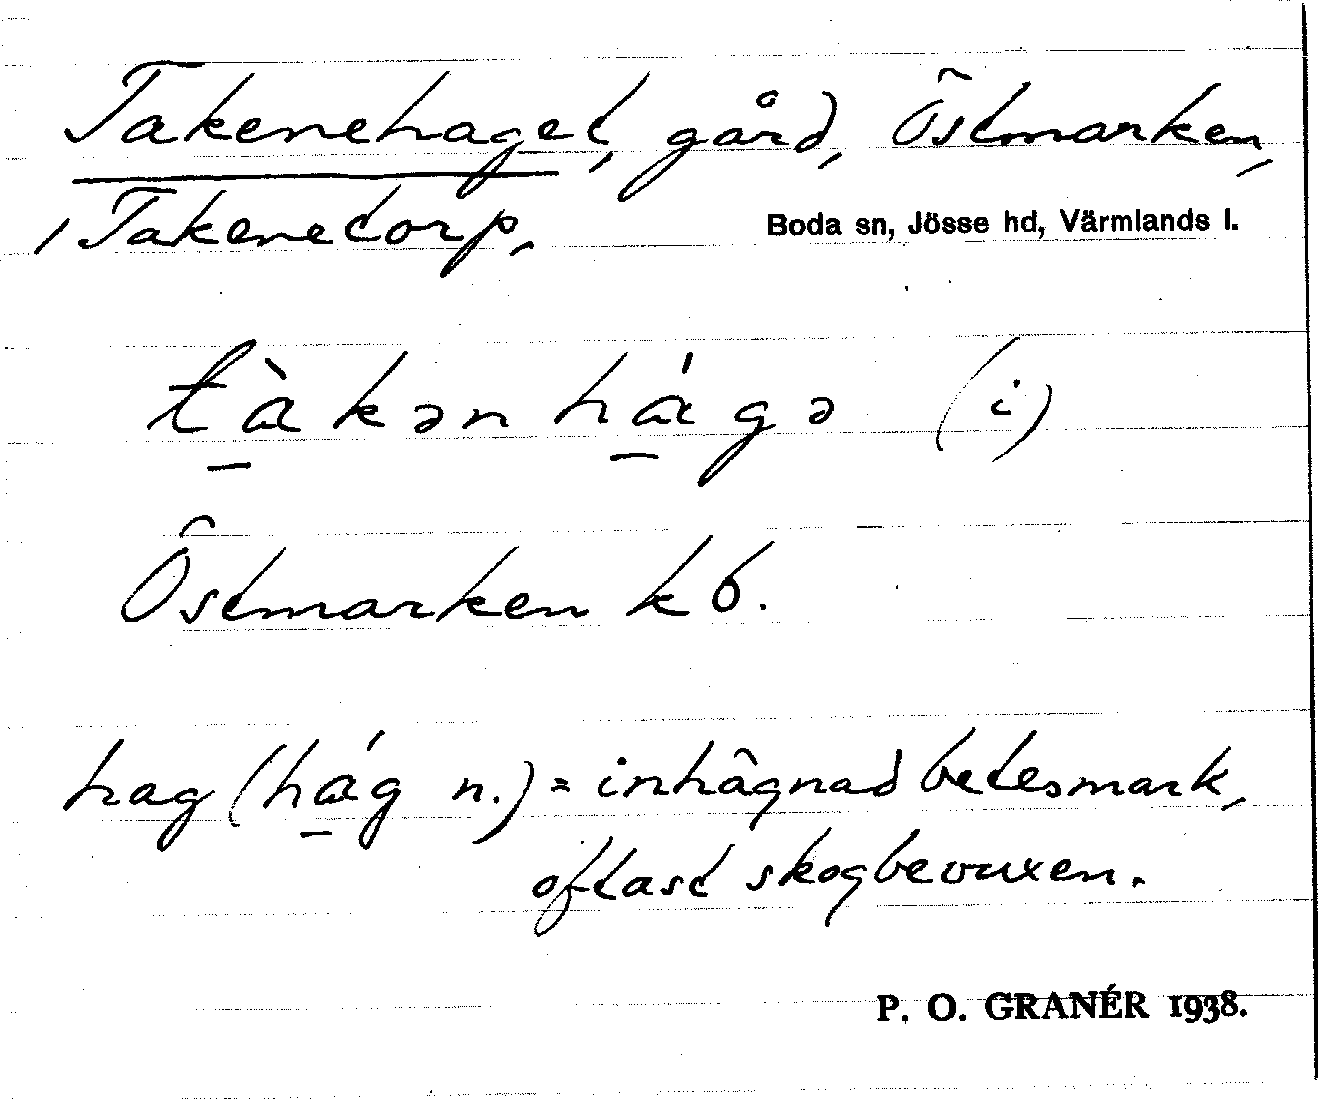 Takenehaget, gård, Östmarken,
/ Takenetorp.
Boda sn, Jösse hd, Värmlands l.
tà̱kən há̱gə (i)
Östmarken k6.
hag (há̱g n.) = inhägnad betesmark,
oftast skogbevuxen.
P. O. GRANÉR 1938.